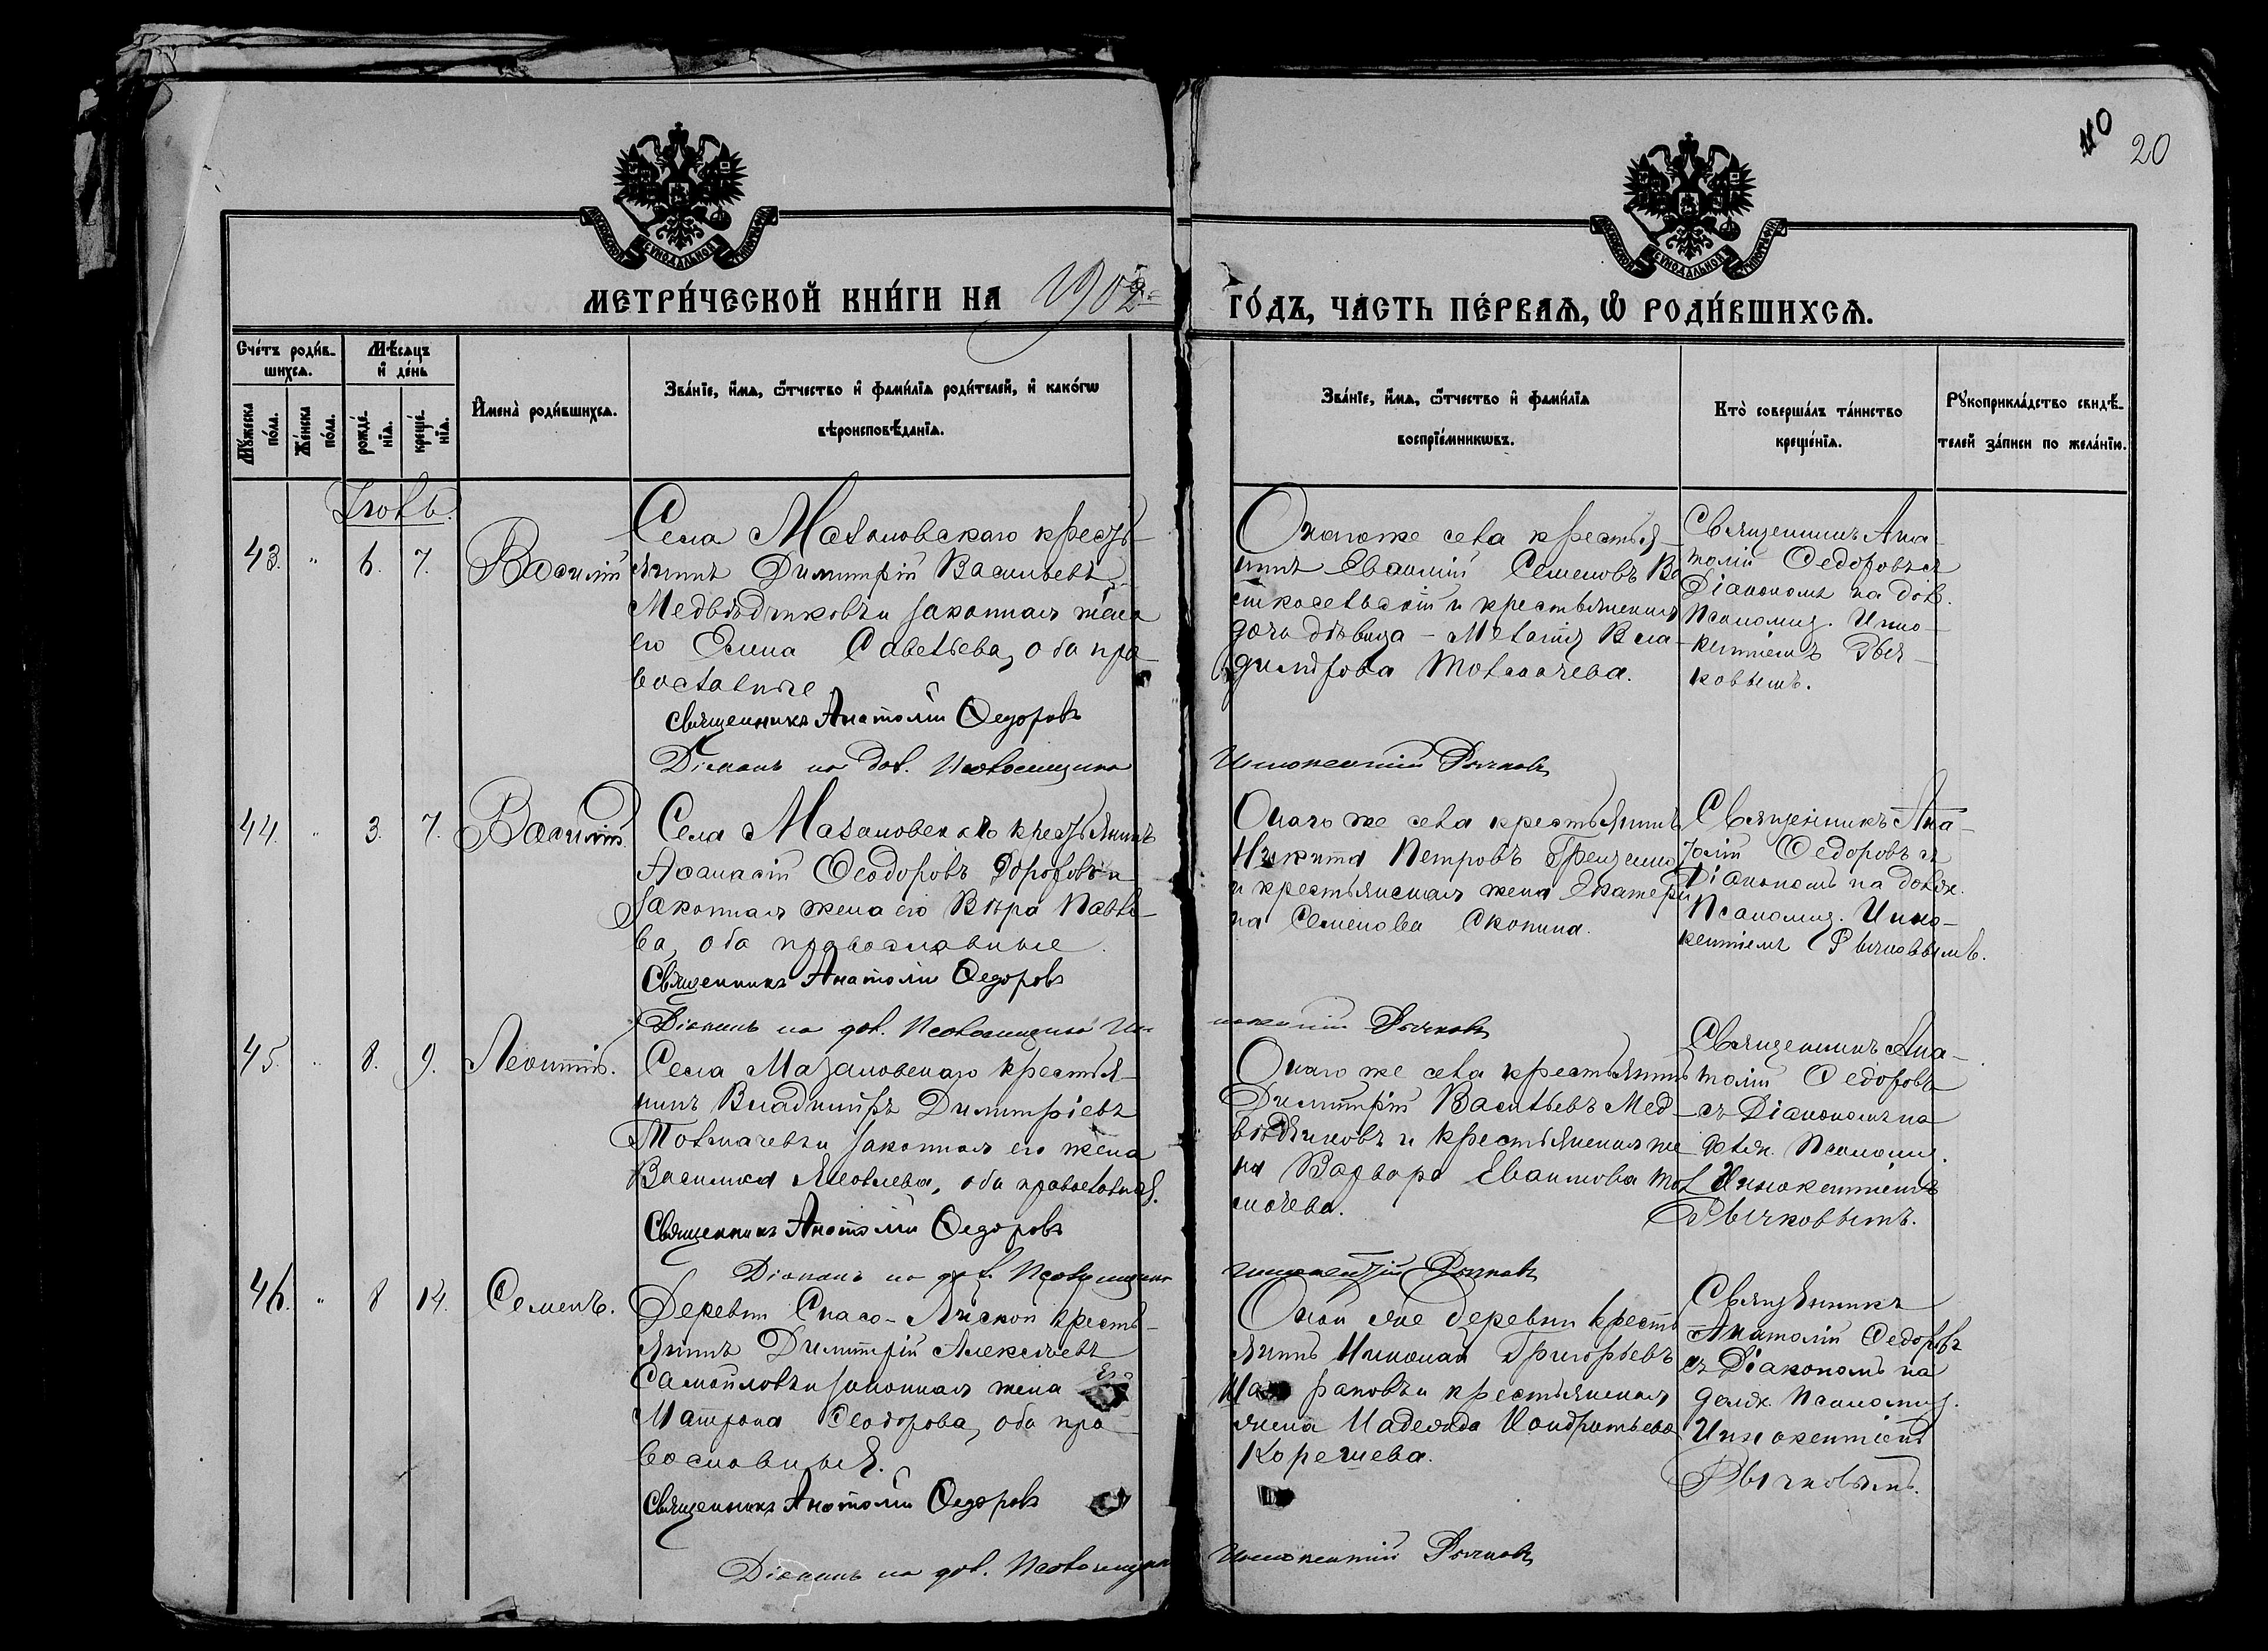 110
20
МЕТРИ́ЧЕСКОЙ КНИ́ГИ НА 1902
ГО́ДЪ, ЧА́СТЬ ПЕ́РВАѦ, Ѽ РОДИ́ВШИХСѦ.
Сче́тъ роди́в-
шихсѧ.
Мѣ́сѧцъ
и҆ де́нь
Мꙋ́жеска
по́ла.
Же́нска
по́ла.
рожде́-
нїѧ.
креще́-
нїѧ.
И҆мена̀ роди́вшихсѧ.
Зва́нїе, и҆́мѧ, ѻ҆́тчество и҆ фами́лїѧ роди́телей, и҆ како́гѡ
вѣроисповѣ́данїѧ.
Зва́нїе, и҆́мѧ, ѻ҆́тчество и҆ фами́лїѧ
воспрїе́мникѡвъ.
Кто̀ соверша́лъ та́инство
креще́нїѧ.
Рꙋкоприкла́дство свидѣ́-
телей за́писи по жела́нїю.
Іюль.
43. " 6. 7. Василій
Села Мазановскаго кресть-
янинъ Димитрій Васильевъ
Медвѣдиковъ и законная жена
его Елена Савельева, оба пра-
вославные
Священникъ Анатолій Ѳедоровъ
Діаконъ на дол. Псаломщика
Онаго же села крестья-
нинъ Евѳимій Семеновъ
и крестьянская
дочь дѣвица - Вла-
димірова Толмачева.
Иннокентій Рычковъ
Священникъ Ана-
толій Ѳедоровъ съ
Діакономъ на дол.
Псаломщ. Инно-
кентіемъ Рыч-
ковымъ.
44. " 3. 7. Василій.
Села Мазановскаго крестьянинъ
Аѳанасій Ѳеодоровъ и
законная жена его Вѣра Павло-
ва, оба православные.
Священникъ Анатолій Ѳедоровъ
Діаконъ на дол. Псаломщика Ин-
Онаго же села крестьянинъ
Никита Петровъ Грищенко
и крестьянская жена Екатери
на Семенова Скопина.
нокентій Рычковъ
Священникъ Ана-
толій Ѳедоровъ съ
Діакономъ на должн.
Псаломщ. Инно-
кентіемъ Рычковымъ.
45. " 8. 9. Леонтій.
Села Мазановскаго крестья-
нинъ Владиміръ Димитріевъ
Толмачевъ и законная его жена
Василиса Яковлева, оба православныя.
Священникъ Анатолій Ѳедоровъ
Діаконъ на дол. Псаломщика
Онаго же села крестьянинъ
Димитрій Васильевъ Мед-
вѣдиковъ и крестьянская же
на Варвара Евѳимова Тол
мачева.
Иннокентій Рычковъ
Священникъ Ана-
толій Ѳедоровъ
съ Діакономъ на
должн. Псаломщ.
Иннокентіемъ
Рычковымъ.
46. " 8 14. Семенъ.
Деревни Спасо-Лиской кресть-
янинъ Димитрій Алексѣевъ
Самойловъ и законная жена Его
Матрона Ѳеодорова, оба пра-
вославныя.
Священникъ Анатолій Ѳедоровъ
Діаконъ на дол. Псаломщика
Оной же деревни кресть
янинъ Николай Григорьевъ
и крестьянская
жена Надежда Кондратьева
Корешева.
Иннокентій Рычковъ
Священникъ
Анатолій Ѳедоровъ
съ Діакономъ на
должн. Псаломщ.
Иннокентіемъ
Рычковымъ.